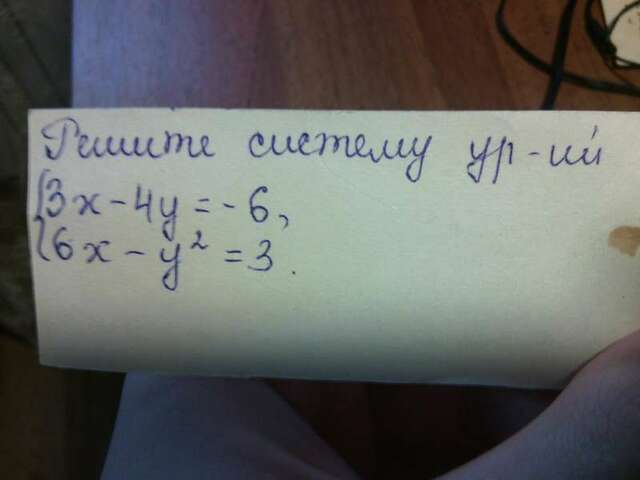 Решите систему ур-ий
{3x - 4y = - 6,
{6x - y² = 3.